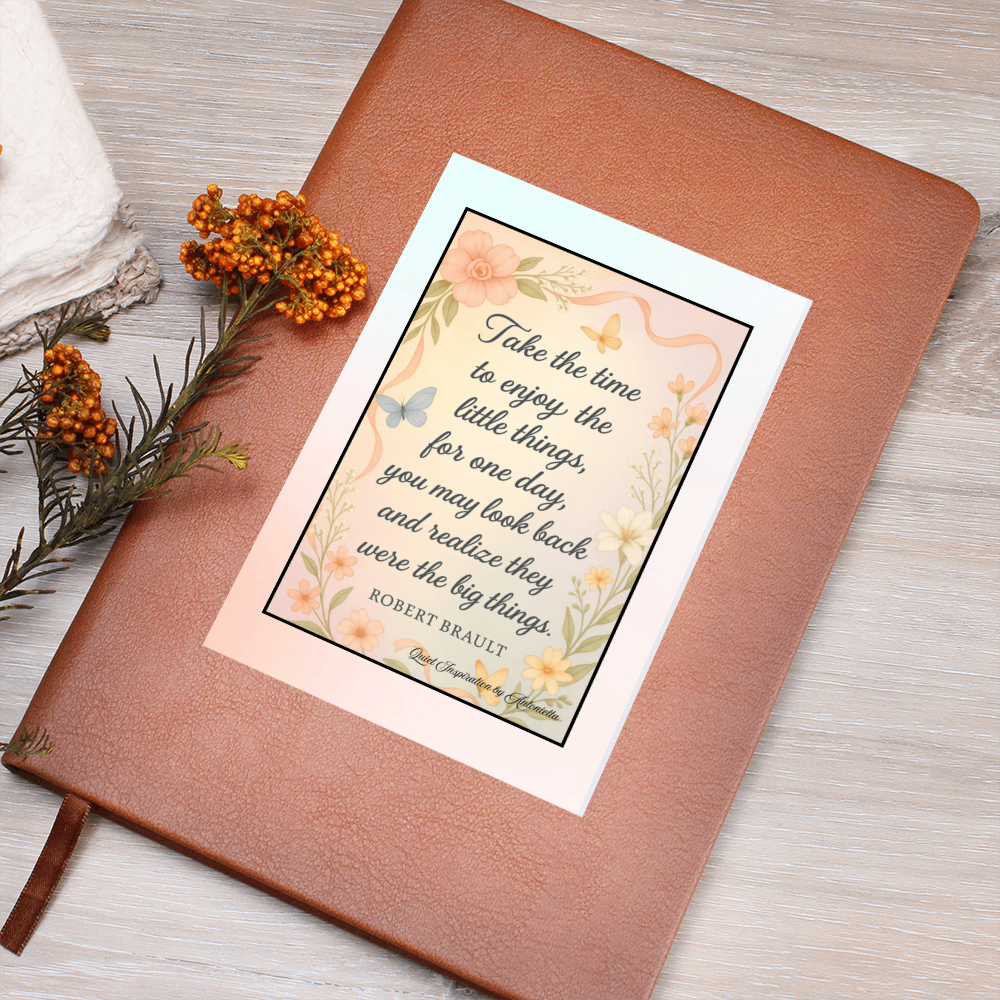 Take the time
to enjoy the
little things,
for one day,
you may look back
and realize they
were the big things.
ROBERT BRAULT
Quiet Inspiration by Antonietta